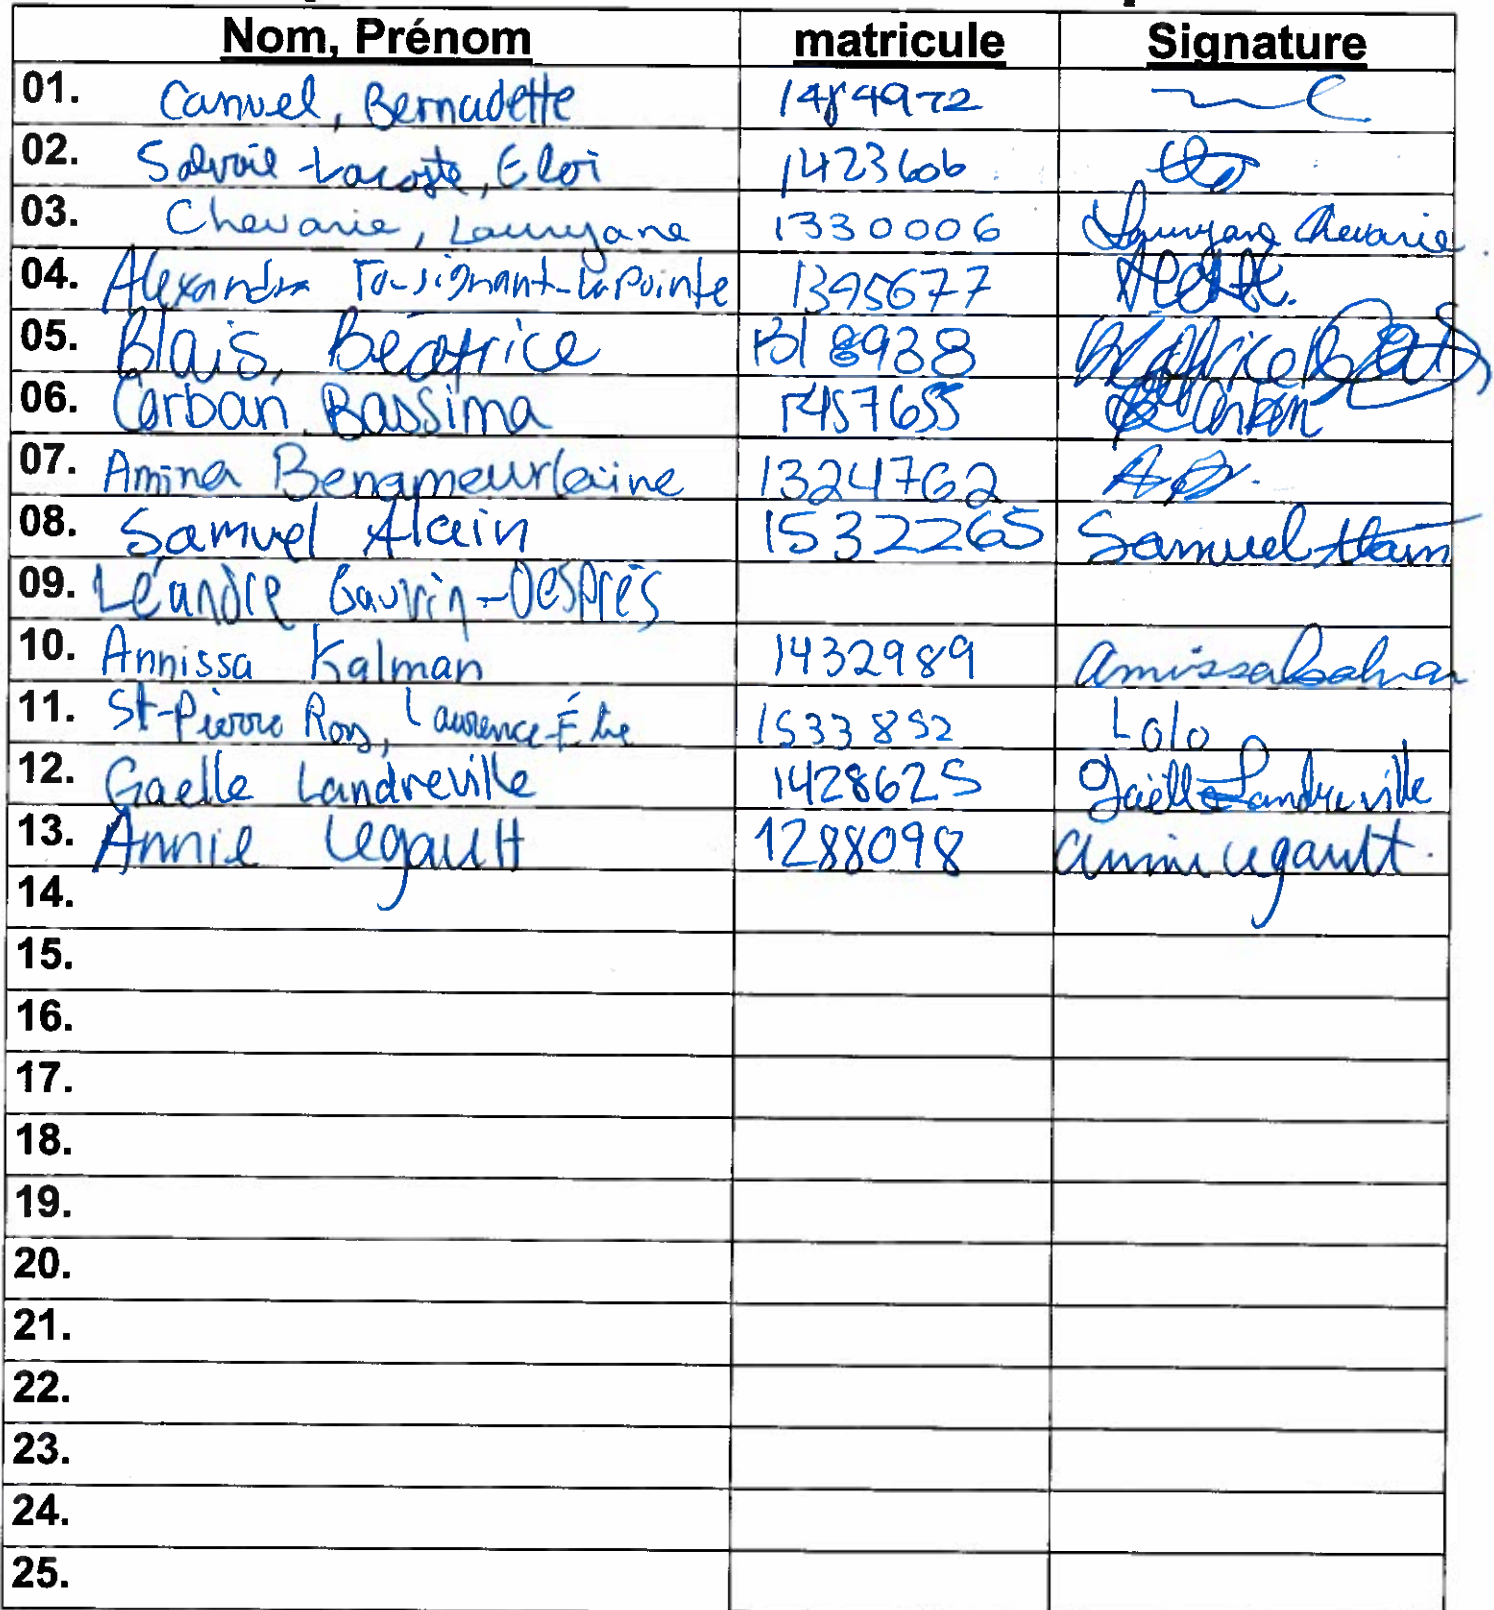 Nom, Prénom matricule Signature
01. Canuel, Bernadette 1484972
02. Salvail-Lacoste, Eloi 1423606
03. Chevarie, Lauryane 1330006 Lauryane Chevarie
04. Alexandra Tousignant-Lapointe 1395677
05. Blais, Béatrice 1318938
06. Corban, Bassima 1457655 Corban
07. Amina Benameurlaine 1324762 A.B.
08. Samuel Alain 1532265 Samuel Alain
09. Léandre Gauvin-Després
10. Annissa Kalman 1432989 Annissa Kalman
11. St-Pierre Roy, Laurence-Élie 1533852 Lolo
12. Gaelle Landreville 1428625 Gaëlle Landreville
13. Annie Legault 1288098 Annie Legault
14.
15.
16.
17.
18.
19.
20.
21.
22.
23.
24.
25.